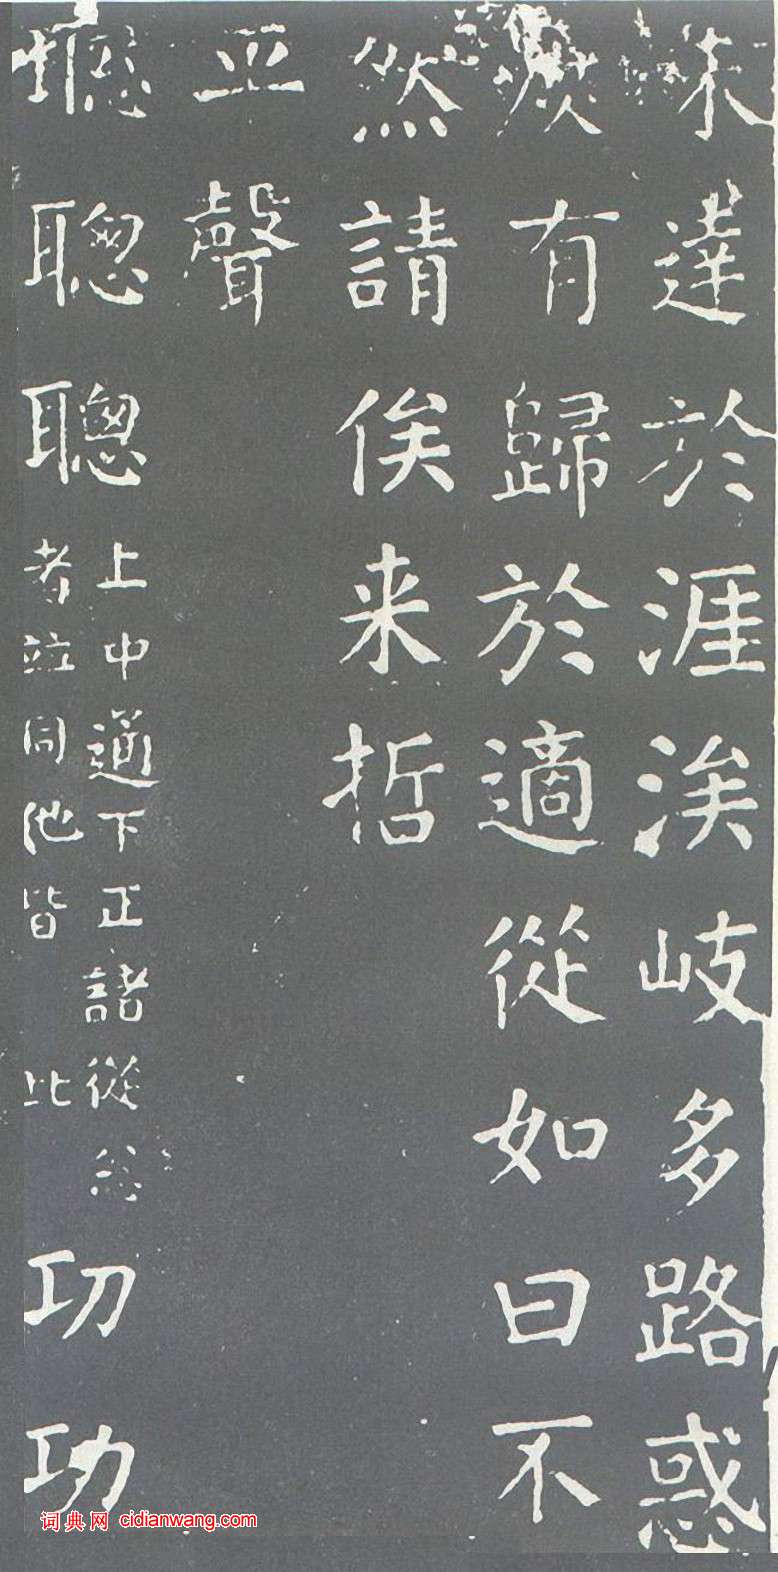 未達於涯涘岐多路惑
庶有歸於適從如曰不
然請俟来哲
平聲
聦聦聰上中通下正諸從忩
者並同他皆 此
㓛功
词典网 cidianwang.com